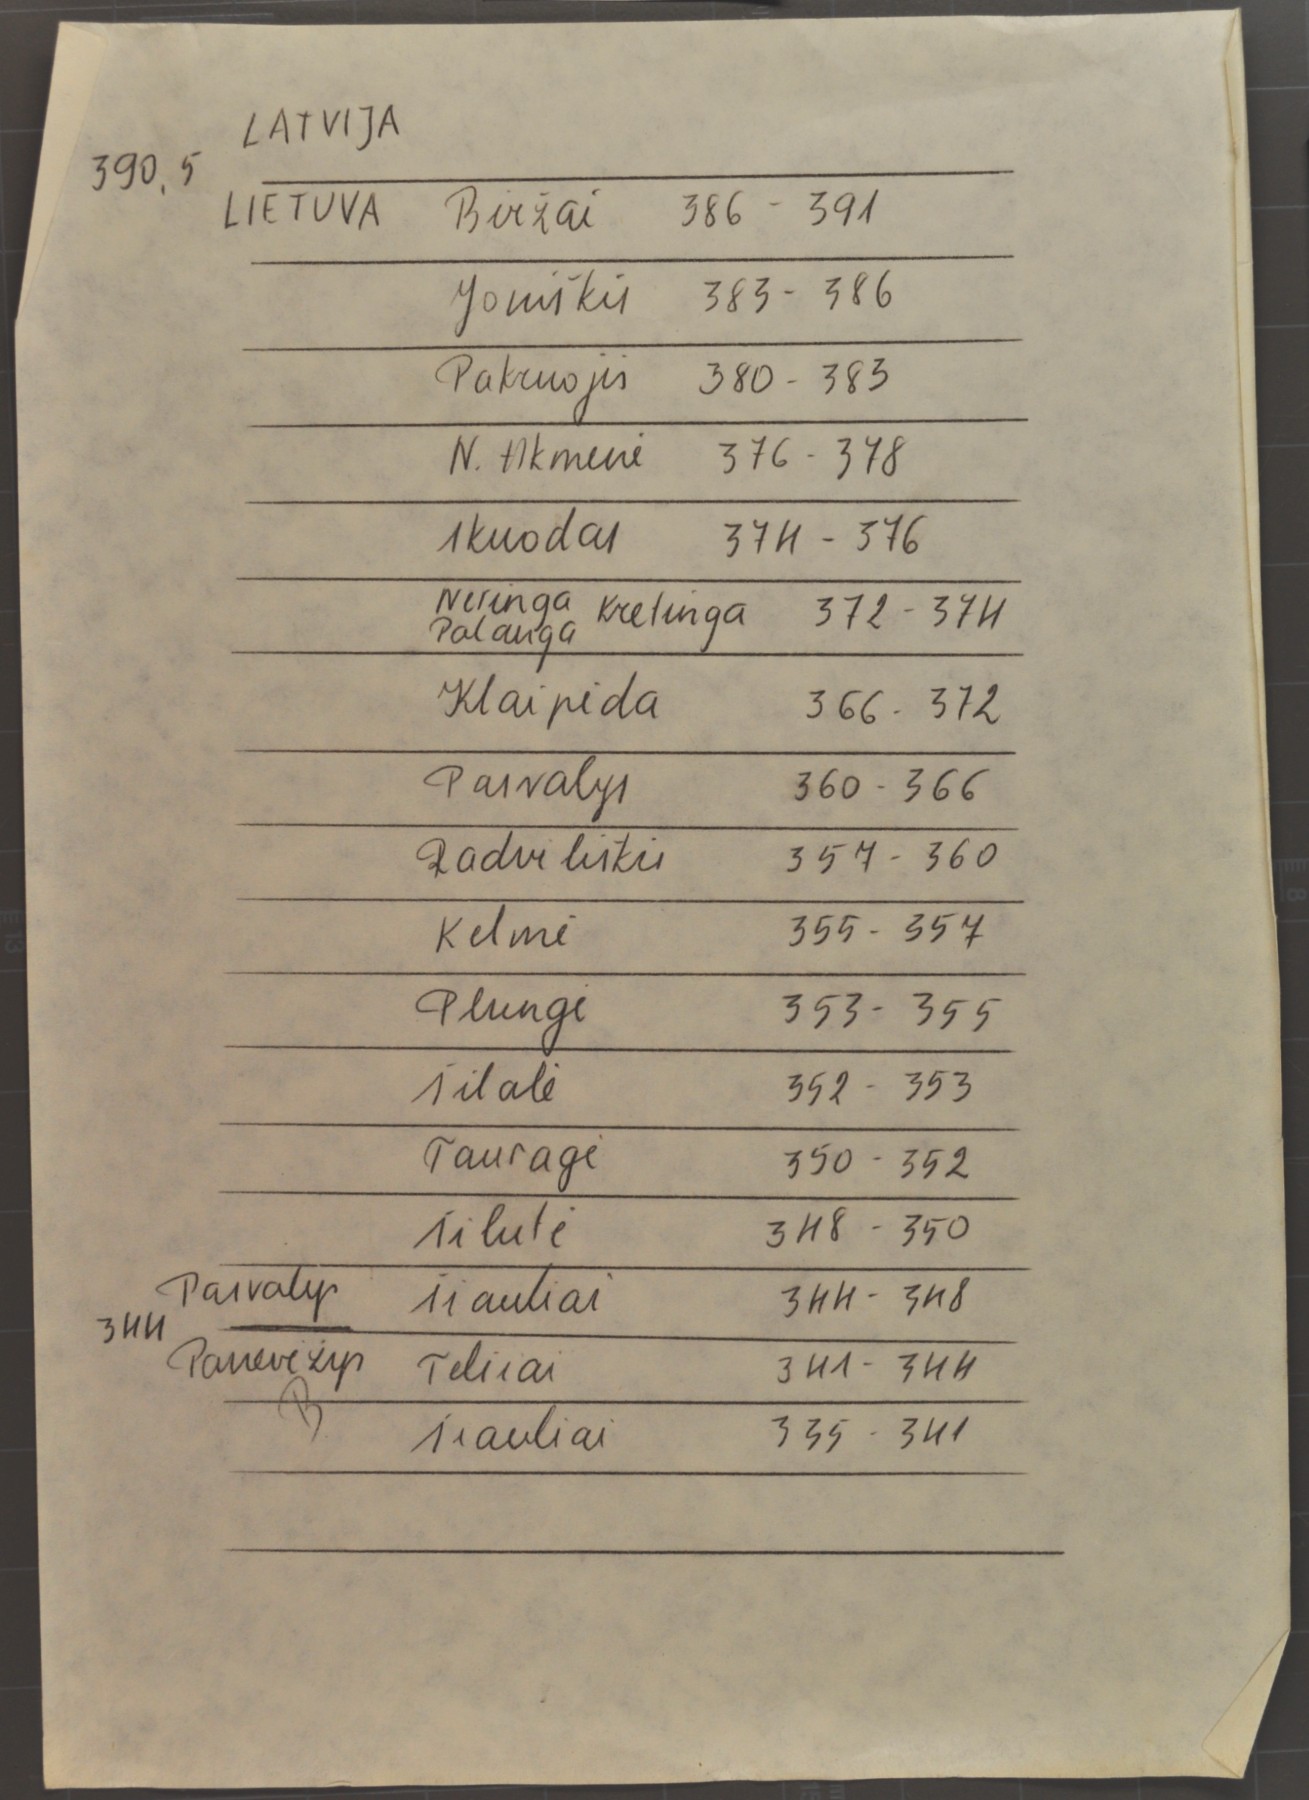 LATVIJA
390,5
LIETUVA Biržai 386 - 391
Joniškis 383 - 386
Pakruojis 380 - 383
N. Akmenė 376 - 378
Skuodas 374 - 376
Neringa Kretinga 372 - 374
Palanga
Klaipėda 366 - 372
Pasvalys 360 - 366
Radviliškis 357 - 360
Kelmė 355 - 357
Plungė 353 - 355
Šilalė 352 - 353
Tauragė 350 - 352
Šilutė 348 - 350
Pasvalys Šiauliai 344 - 348
344
Panevėžys Telšiai 341 - 344
B
Šiauliai 335 - 341